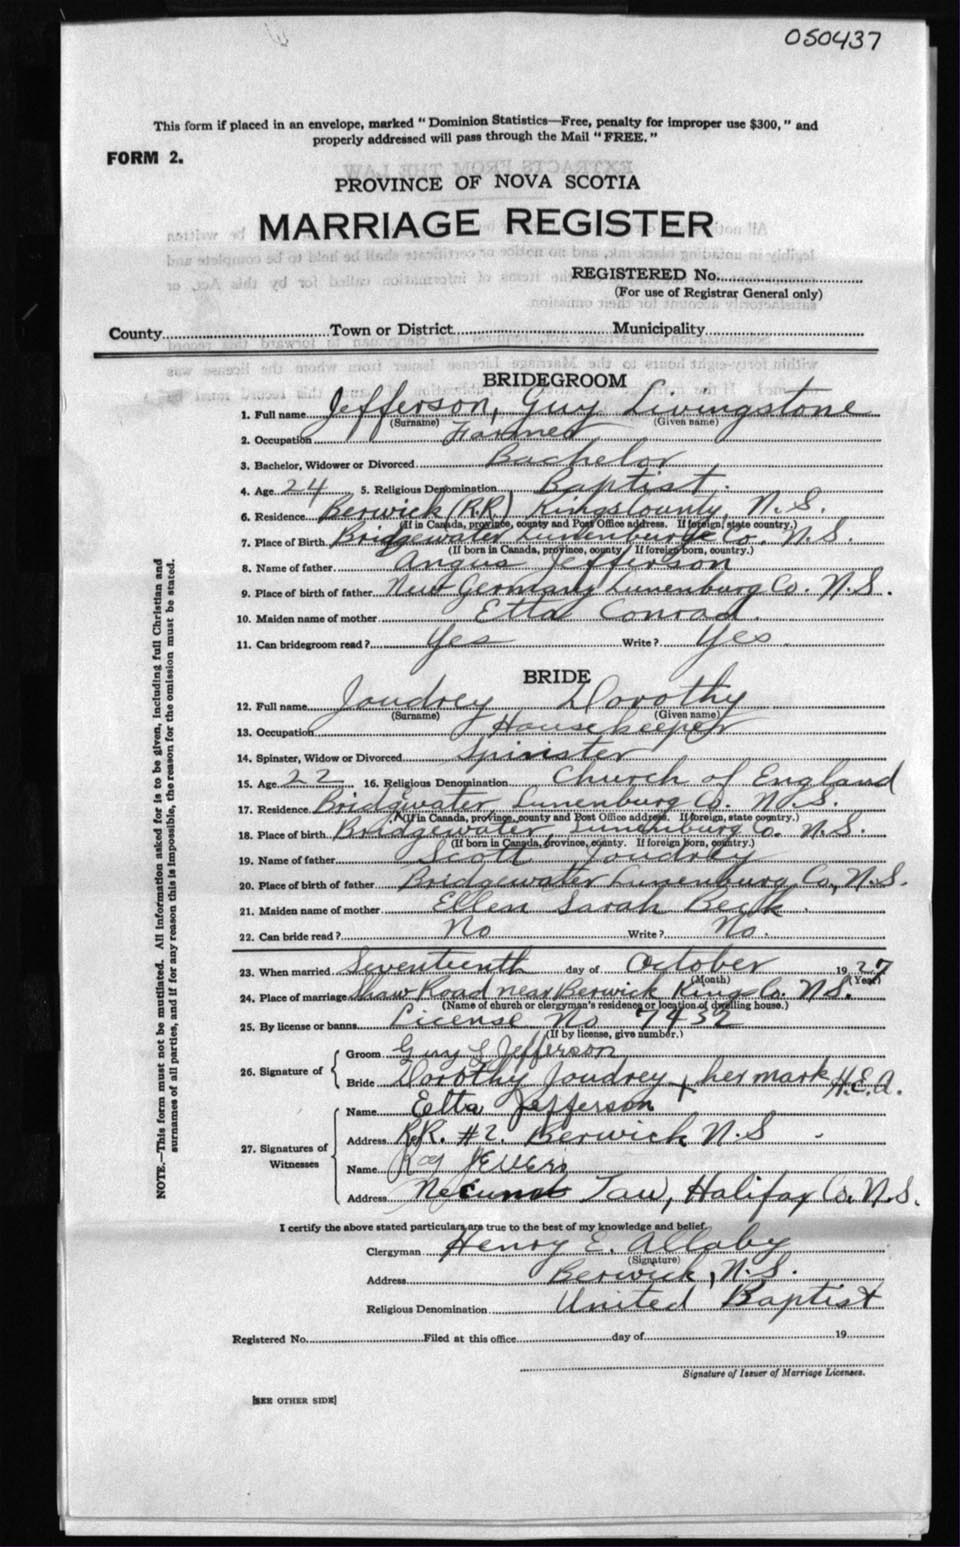 050437
This form if placed in an envelope, marked "Dominion Statistics—Free, penalty for improper use $300," and
properly addressed will pass through the Mail "FREE."
FORM 2.
PROVINCE OF NOVA SCOTIA
MARRIAGE REGISTER
REGISTERED No.
(For use of Registrar General only)
County Town or District Municipality
BRIDEGROOM
1. Full name Jefferson, Guy Livingstone
(Surname) (Given name)
2. Occupation Farmer
3. Bachelor, Widower or Divorced Bachelor
4. Age 24 5. Religious Denomination Baptist.
6. Residence Berwick (R.R.) Kings County, N.S.
(If in Canada, province, county and Post Office address. If foreign, state country.)
7. Place of Birth Bridgewater Lunenburg Co. N.S.
(If born in Canada, province, county. If foreign born, country.)
8. Name of father Angus Jefferson
9. Place of birth of father New Germany Lunenburg Co. N.S.
10. Maiden name of mother Etta Conrad.
11. Can bridegroom read? Yes Write? Yes
BRIDE
12. Full name Joudrey Dorothy
(Surname) (Given name)
13. Occupation Housekeeper
14. Spinster, Widow or Divorced Spinister
15. Age 22 16. Religious Denomination Church of England
17. Residence Bridgwater, Lunenburg Co. N.S.
(If in Canada, province, county and Post Office address. If foreign, state country.)
18. Place of birth Bridgewater, Lunenburg Co. N.S.
(If born in Canada, province, county. If foreign born, country.)
19. Name of father Scott Joudrey
20. Place of birth of father Bridgewater Lunenburg Co, N.S.
21. Maiden name of mother Ellen Sarah Beck.
22. Can bride read? No Write? No.
23. When married Seventeenth day of October 1927
(Month) (Year)
24. Place of marriage Shaw Road near Berwick Kings Co. N.S.
(Name of church or clergyman's residence or location of dwelling house.)
25. By license or banns License No 7432
(If by license, give number.)
26. Signature of Groom Guy L Jefferson
Bride Dorothy Joudrey x her mark H.E.A.
27. Signatures of Witnesses
Name Etta Jefferson
Address R.R. #2. Berwick N.S
Name Roy
Address Halifax Co. N.S.
I certify the above stated particulars are true to the best of my knowledge and belief.
Clergyman Henry E. Allaby
(Signature)
Address Berwick, N.S.
Religious Denomination United Baptist
Registered No. Filed at this office day of 19
Signature of Issuer of Marriage Licenses.
[SEE OTHER SIDE]
NOTE.—This form must not be mutilated. All information asked for is to be given, including full Christian and
surnames of all parties, and if for any reason this is impossible, the reason for the omission must be stated.